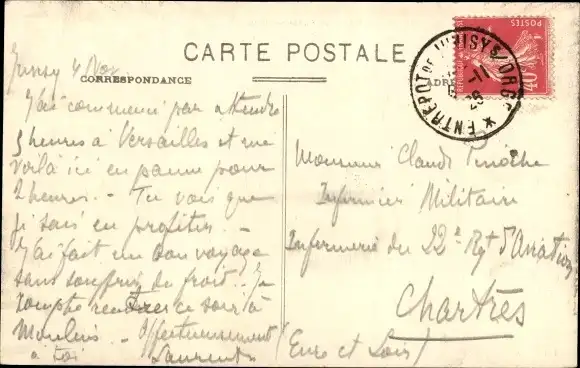 CARTE POSTALE
CORRESPONDANCE
ADRE
POSTES
40
ENTREPOT DE JUVISY S/ORGE
-11
Juvisy 4 Nov
J'ai commencé par attendre
3 heures à Versailles et me
voilà ici en panne pour
2 heures. - Tu vois que
je sais en profiter. -
J'ai fait un bon voyage
sans souffrir du froid. - Je
compte rentrer ce soir à
Moulins. - Affectueusement
à toi Laurent
Monsieur Claude
Infirmier Militaire
Infirmerie du 22e Rgt d'Aviation
Chartres
(Eure et Loir)